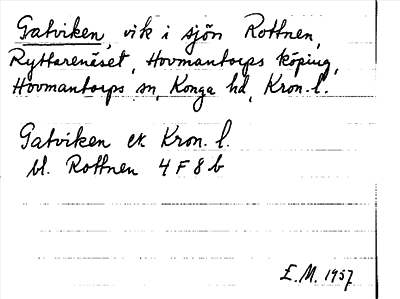 Gatviken, vik i sjön Rottnen,
Ryttarenäset, Hovmantorps köping,
Hovmantorps sn, Konga hd, Kron. l.
Gatviken ek Kron. l.
bl. Rottnen 4 F 8 b
E.M. 1957